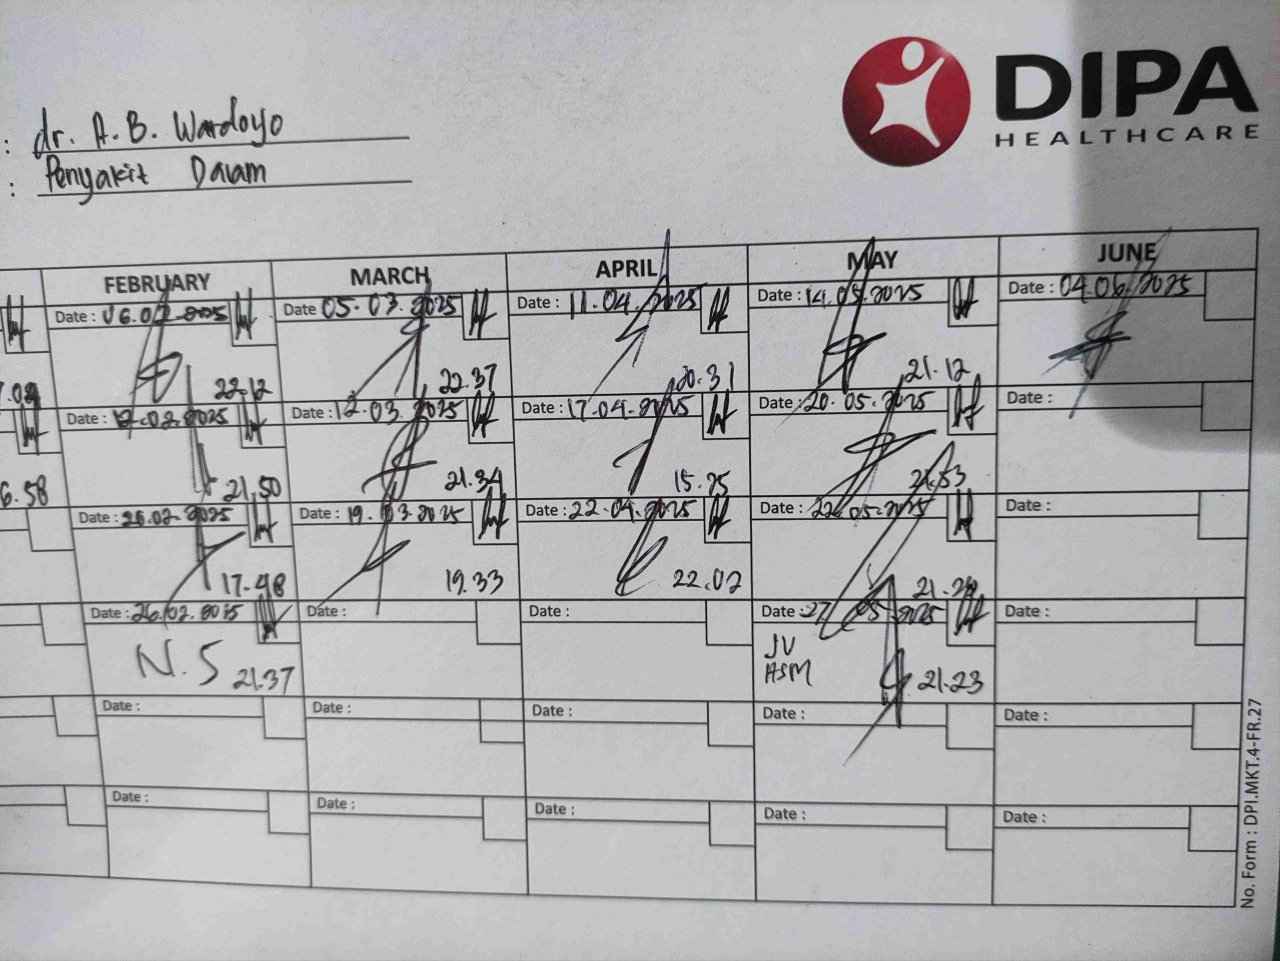 DIPA
HEALTHCARE
: dr. A. B. Wardoyo
: Penyakit Dalam
FEBRUARY MARCH APRIL MAY JUNE
Date : 06.02.2025 Date 05.03.2025 Date : 11.04.2025 Date : 14.05.2025 Date : 04.06.2025
22.12 22.37 20.31 21.12
Date : 12.02.2025 Date : 12.03.2025 Date : 17.04.2025 Date : 20.05.2025 Date :
6.58 21.50 21.34 15.25 21.53
Date : 2025 Date : 19.03.2025 Date : 22.04.2025 Date : 22.05.2025 Date :
17.48 19.33 22.02
Date : 26.02.2025 Date : Date : Date : 27 05 2025 Date :
N.S 21.37 JV
ASM 21.23
Date : Date : Date : Date : Date :
Date : Date : Date : Date : Date :
No. Form : DPI.MKT.4-FR.27